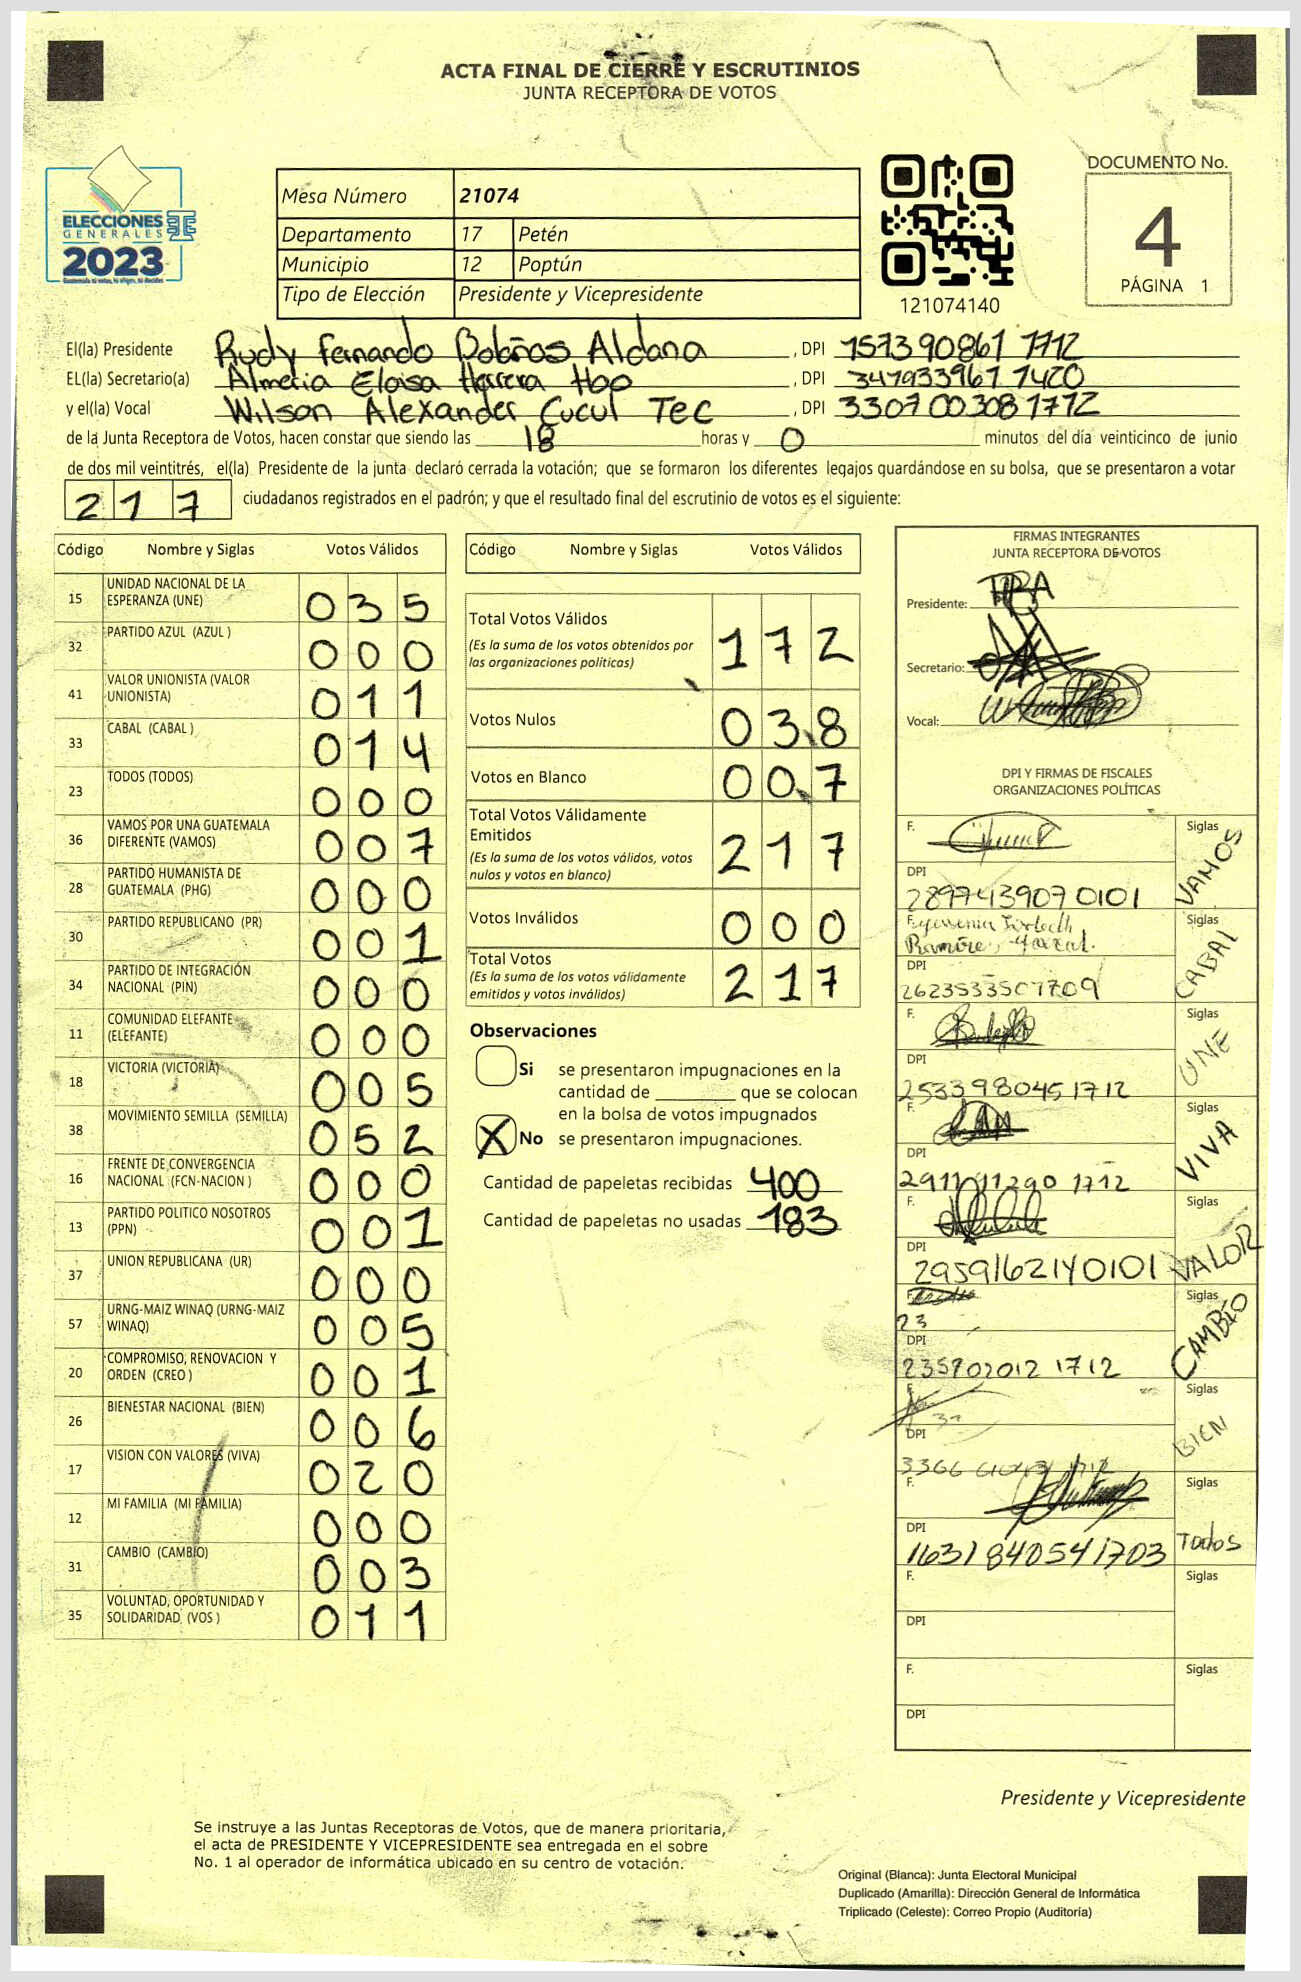 ACTA FINAL DE CIERRE Y ESCRUTINIOS
JUNTA RECEPTORA DE VOTOS
ELECCIONES
GENERALES
2023
Mesa Número 21074
Departamento 17 Petén
Municipio 12 Poptún
Tipo de Elección Presidente y Vicepresidente
121074140
DOCUMENTO No.
4
PÁGINA 1
El(la) Presidente Rudy Fernando Bolaños Aldana , DPI 157390861 1712
EL(la) Secretario(a) Almeria Eloisa Herrera , DPI 347933967 1420
y el(la) Vocal Wilson Alexander Cucul Tec , DPI 3307003081712
de la Junta Receptora de Votos, hacen constar que siendo las 18 horas y 0 minutos del día veinticinco de junio
de dos mil veintitrés, el(la) Presidente de la junta declaró cerrada la votación; que se formaron los diferentes legajos guardándose en su bolsa, que se presentaron a votar
217 ciudadanos registrados en el padrón; y que el resultado final del escrutinio de votos es el siguiente:
Código Nombre y Siglas Votos Válidos
15 UNIDAD NACIONAL DE LA ESPERANZA (UNE) 035
32 PARTIDO AZUL (AZUL ) 000
41 VALOR UNIONISTA (VALOR UNIONISTA) 011
33 CABAL (CABAL ) 014
23 TODOS (TODOS) 000
36 VAMOS POR UNA GUATEMALA DIFERENTE (VAMOS) 007
28 PARTIDO HUMANISTA DE GUATEMALA (PHG) 000
30 PARTIDO REPUBLICANO (PR) 001
34 PARTIDO DE INTEGRACIÓN NACIONAL (PIN) 000
11 COMUNIDAD ELEFANTE (ELEFANTE) 000
18 VICTORIA (VICTORIA) 005
38 MOVIMIENTO SEMILLA (SEMILLA) 052
16 FRENTE DE CONVERGENCIA NACIONAL (FCN-NACION ) 000
13 PARTIDO POLITICO NOSOTROS (PPN) 001
37 UNION REPUBLICANA (UR) 000
57 URNG-MAIZ WINAQ (URNG-MAIZ WINAQ) 005
20 COMPROMISO, RENOVACION Y ORDEN (CREO ) 001
26 BIENESTAR NACIONAL (BIEN) 006
17 VISION CON VALORES (VIVA) 020
12 MI FAMILIA (MI FAMILIA) 000
31 CAMBIO (CAMBIO) 003
35 VOLUNTAD, OPORTUNIDAD Y SOLIDARIDAD (VOS ) 011
Código Nombre y Siglas Votos Válidos
Total Votos Válidos 172
(Es la suma de los votos obtenidos por
las organizaciones políticas)
Votos Nulos 038
Votos en Blanco 007
Total Votos Válidamente
Emitidos 217
(Es la suma de los votos válidos, votos
nulos y votos en blanco)
Votos Inválidos 000
Total Votos 217
(Es la suma de los votos válidamente
emitidos y votos inválidos)
Observaciones
Si se presentaron impugnaciones en la
cantidad de que se colocan
en la bolsa de votos impugnados
X No se presentaron impugnaciones.
Cantidad de papeletas recibidas 400
Cantidad de papeletas no usadas 183
FIRMAS INTEGRANTES
JUNTA RECEPTORA DE VOTOS
Presidente:
Secretario:
Vocal:
DPI Y FIRMAS DE FISCALES
ORGANIZACIONES POLÍTICAS
F. Siglas VAMOS
DPI
2897439070101
F. Siglas CABAL
DPI
2623533507709
F. Siglas UNE
DPI
2533980451712
F. Siglas VIVA
DPI
2911112901712
F. Siglas VALOR
DPI
2959162140101
F. Siglas CAMBIO
23
DPI
235902012 1712
F. Siglas BIEN
DPI
3366 1712
F. Siglas Todos
DPI
1631840541703
F. Siglas
DPI
F. Siglas
DPI
Presidente y Vicepresidente
Se instruye a las Juntas Receptoras de Votos, que de manera prioritaria,
el acta de PRESIDENTE Y VICEPRESIDENTE sea entregada en el sobre
No. 1 al operador de informática ubicado en su centro de votación.
Original (Blanca): Junta Electoral Municipal
Duplicado (Amarilla): Dirección General de Informática
Triplicado (Celeste): Correo Propio (Auditoría)